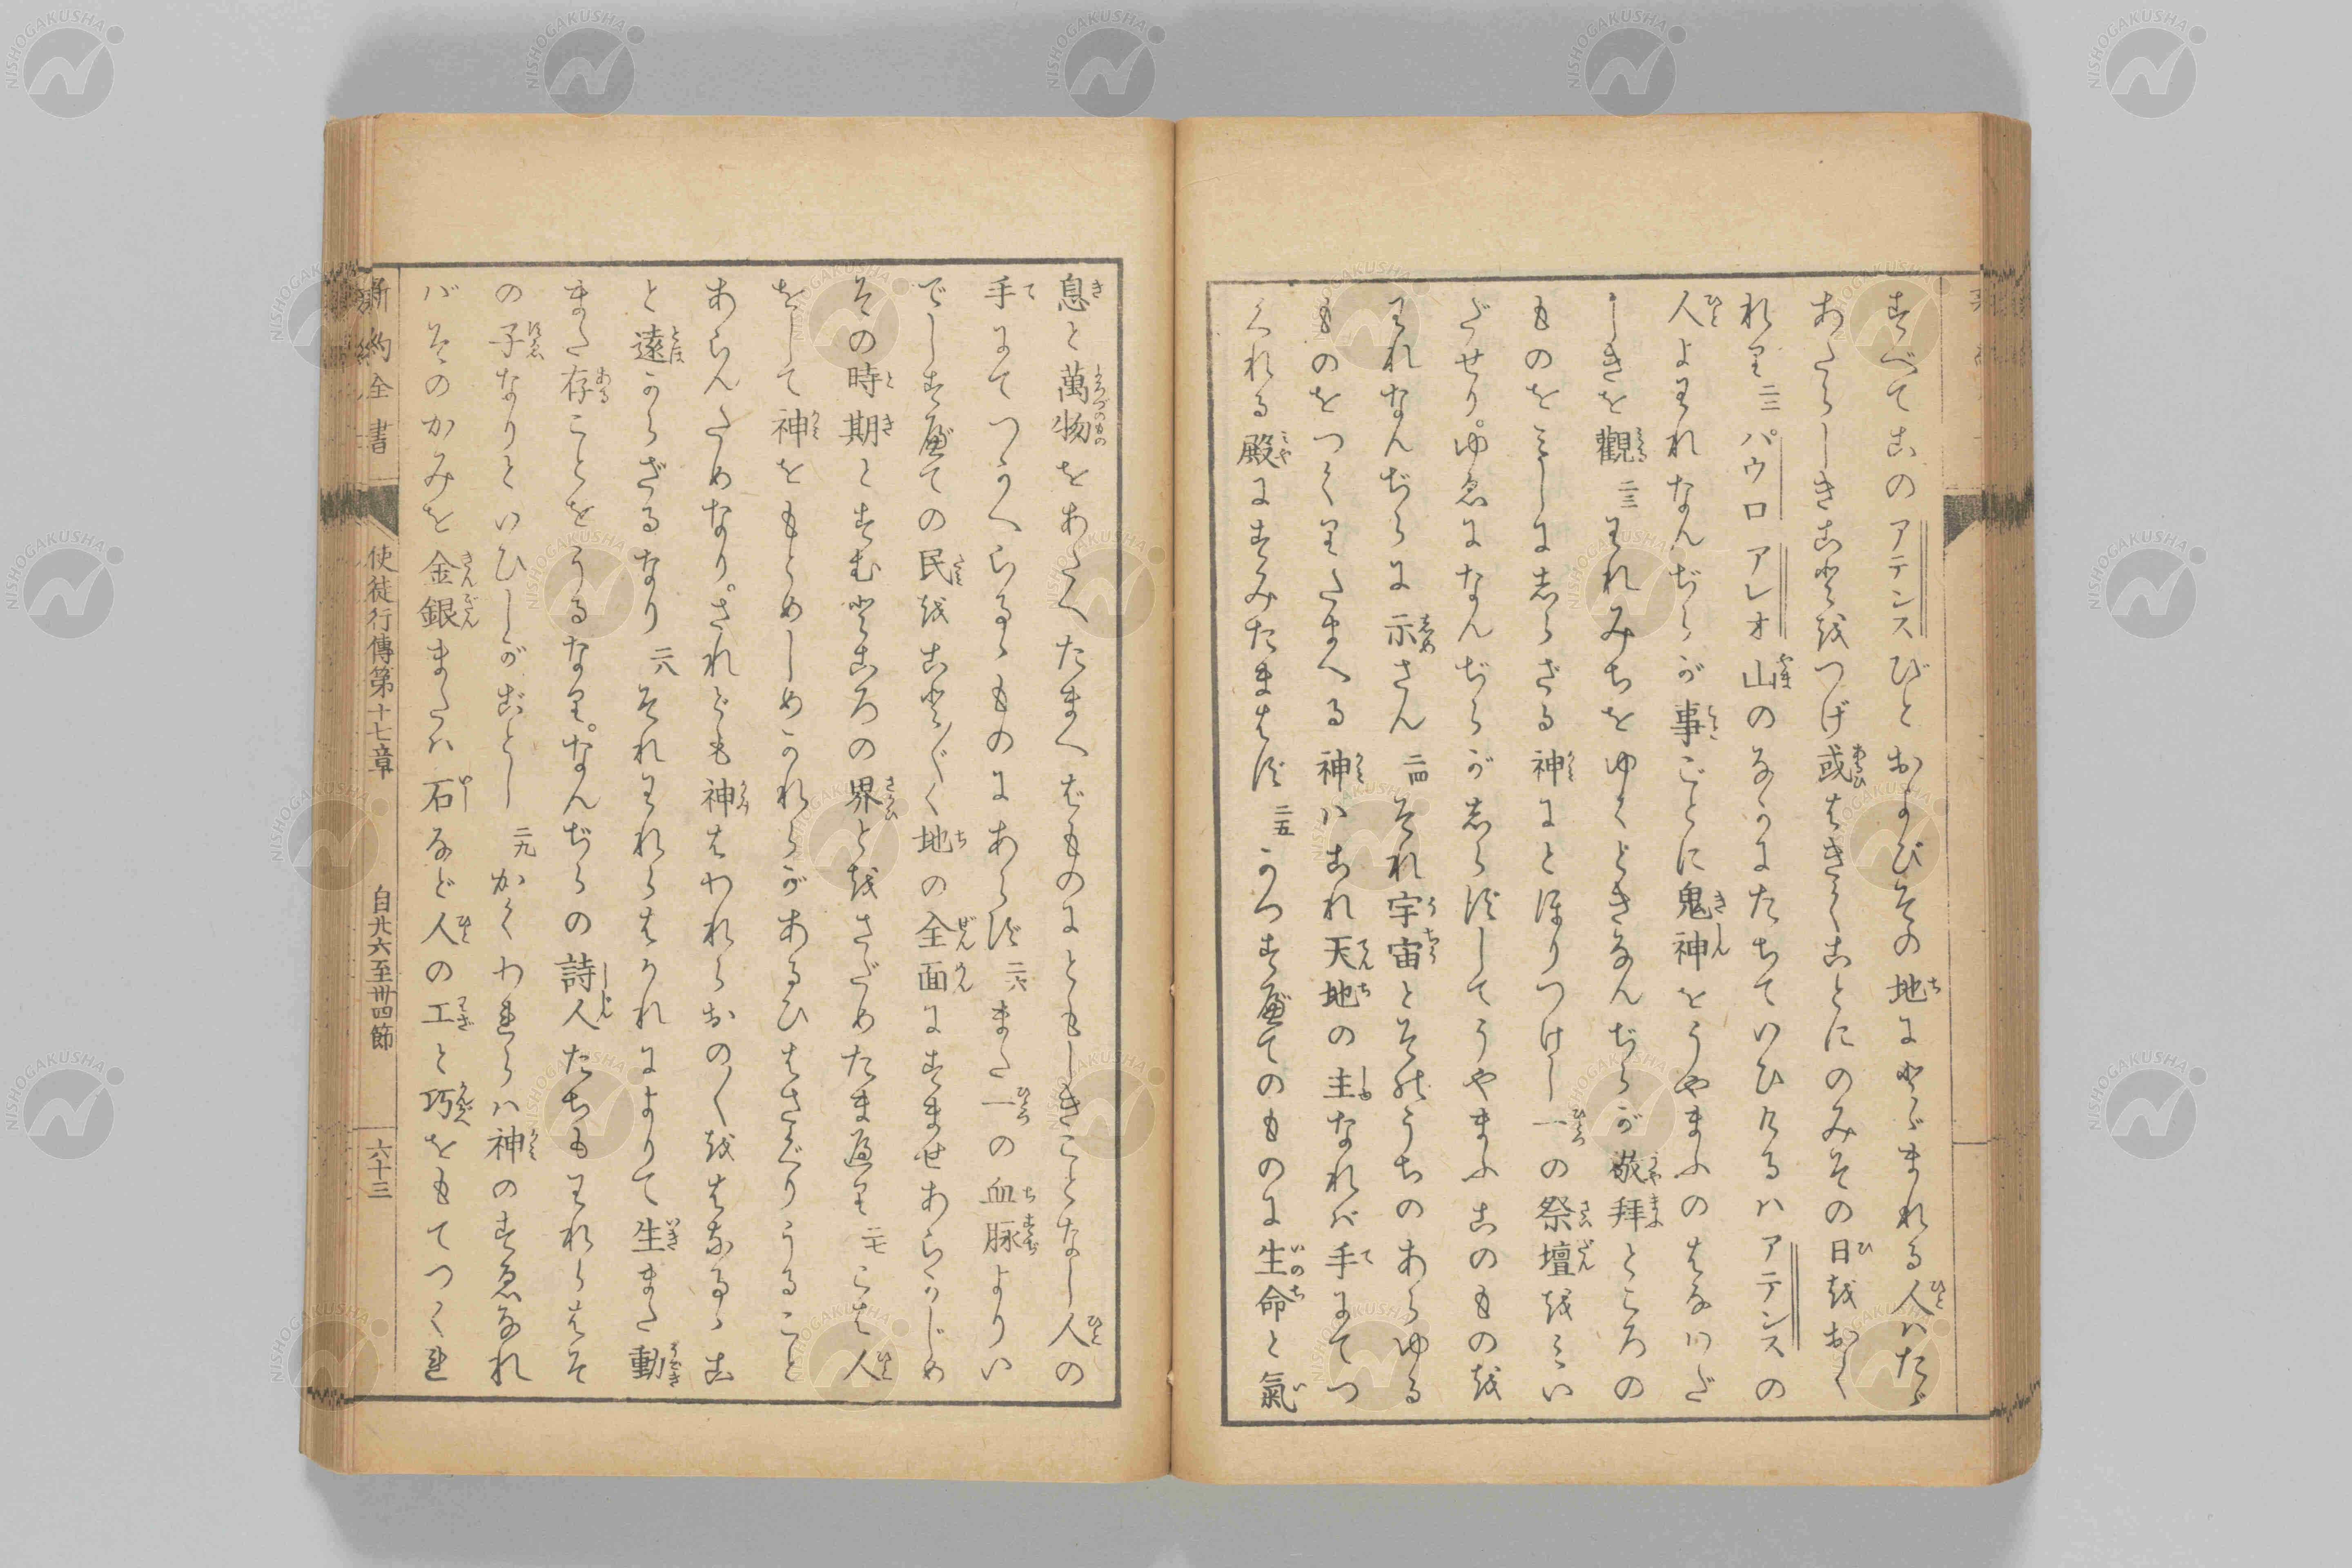 すべてこのアテンスびとおよびその地にとゞまれる人ハたゞ
あたらしきことをつげ或はきくことにのみその日をおく
れり 二二 パウロアレオ山のなかにたちていひけるハアテンスの
人よわれなんぢらが事ごとに鬼神をうやまふのはなハだ
しきを觀 二三 われみちをゆくときなんぢらが敬拜ところの
ものをみしにしらざる神にとほりつけし一の祭壇をみい
だせり。ゆゑになんぢらがしらずしてうやまふこのものを
われなんぢらに示さん 二四 それ宇宙とそのうちのあらゆる
ものをつくりたまへる神ハこれ天地の主なれバ手にてつ
くれる殿にすみたまはず 二五 かつすべてのものに生命と氣
息と萬物をあたへたまへばものにともしきことなし人の
手にてつかへらるゝものにあらず 二六 また一の血脉よりい
でしすべての民をこと〴〵く地の全面にすませあらかじめ
その時期とすむところの界とをさだめたまへり 二七 こは人
をして神をもとめしめかれらがあるひはさぐりうること
あらんためなり。されども神はわれらおの〳〵をはなるゝこ
と遠からざるなり 二八 それわれらはかれによりて生また動
また存ことをうるなり。なんぢらの詩人たちもわれらはそ
の子なりといひしがごとし 二九 かくわれらハ神のすゑなれ
バそのかみを金銀またハ石など人の工と巧をもてつくれ
新約全書 使徒行傳第十七章 自廿六至卅四節 六十三